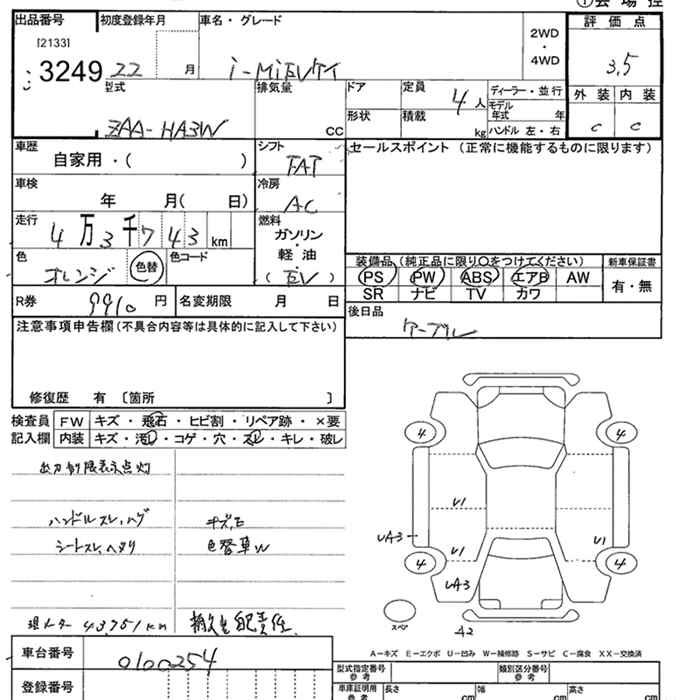 ①会場控
出品番号
[2133]
3249
初度登録年月
22 月
車名・グレード
i-MiEVケイ
2WD
・
4WD
評価点
3,5
型式
ZAA-HA3W
排気量
CC
ドア
形状
定員
4人
積載
kg
ディーラー・並行
モデル
年式 年
ハンドル 左・右
外装 内装
C C
車歴
自家用・( )
シフト
FAT
セールスポイント (正常に機能するものに限ります)
車検
年 月( 日)
冷房
AC
走行
4万3千743km
燃料
ガソリン
・
軽油
(EV)
色
オレンジ 色替
色コード
装備品(純正品に限り〇をつけてください)
新車保証書
PS PW ABS エアB AW
SR ナビ TV カワ
有・無
R券
9910円
名変期限 月 日
後日品
ケーブル
注意事項申告欄(不具合内容等は具体的に記入して下さい)
修復歴 有 〔箇所 〕
検査員
記入欄
FW キズ・飛石・ヒビ割・リペア跡・×要
内装 キズ・汚れ・コゲ・穴・スレ・キレ・破レ
出力制限表示点灯
ハンドルスレ、ハゲ
シートスレ、ヘタリ
キズ、E
色替車W
現メーター 43751km
搬入生配責任
4 4
U1
UA3 U1 U1
4 4
UA3
スペア
A2
A-キズ E-エクボ U-凹み W-補修跡 S-サビ C-腐食 XX-交換済
車台番号
0100254
登録番号
型式指定番号
参考
類別区分番号
参考
車庫証明用
参考
長さ cm
幅 cm
高さ cm